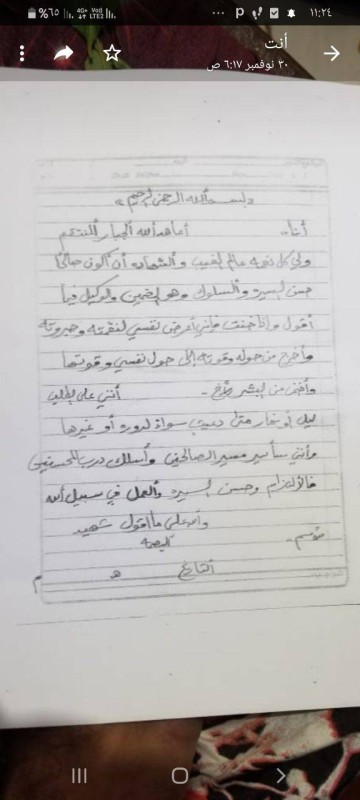 ١١:٢٤
%٦٥
4G+
Vo)) LTE2
أنت
٣٠ نوفمبر ٦:١٧ ص
«بسم الله الرحمن الرحيم»
أنا.. أعاهد الله الجبار المنتقم
ولي كل نعمه عالم الغيب والشهادة أن أكون صالحًا
حسن السيرة والسلوك وهو الضمين والوكيل فيما
أقول وإذا خنت فإنني أعرض نفسي لنقمته وجبروته
وأخرج من حوله وقوته إلى حول نفسي وقوتها
أنني على
ليل أو نهار متى سواء لدوره أو غيرها
وأنني سأسير مسير الصالحين وأسلك درب المحسنين
فالإلتزام وحسن السيرة والعمل في سبيل الله
والله على ما أقول شهيد
البصمة
التاريخ هـ م